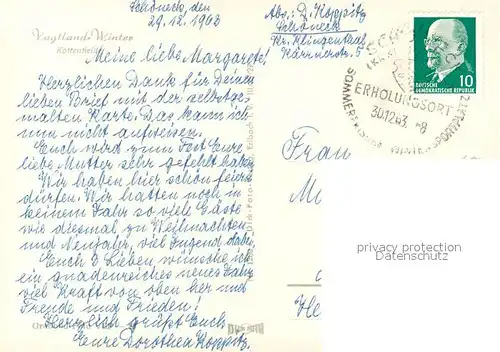 Schöneck, den
29.12.1963
Vogtland-Winter
Kottenheide
Meine liebe Margarete!
Herzlichen Dank für Deinen
lieben Brief mit der selbstge-
malten Karte. Das kann ich
nun nicht aufweisen.
Euch wird zum Fest Eure
liebe Mutter sehr gefehlt haben.
Wir haben hier schön feiern
dürfen. Wir hatten noch in
keinem Jahr so viele Gäste
wie diesmal zu Weihnachten
und Neujahr, viel Jugend dabei.
Euch 3 Lieben wünsche ich
ein gnadenreiches neues Jahr
viel Kraft von oben her und
Freude und Frieden!
Herzlich grüßt Euch
Eure Dorothea Koppitz
Abs.: D. Koppitz
Schöneck
Kr. Klingenthal
Kärrnerstr. 5
DEUTSCHE
DEMOKRATISCHE REPUBLIK
10
ERHOLUNGSORT
30.12.63 -8
WINTERSPORTPLATZ
Frau
privacy protection
VeronikaD